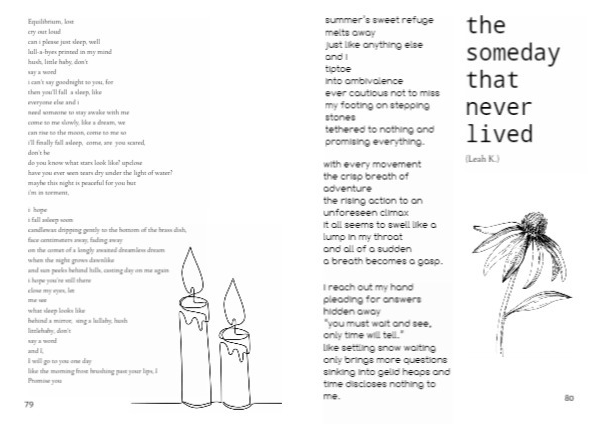 Equilibrium, lost
cry out loud
can i please just sleep, well
lull-a-byes printed in my mind
hush, little baby, don't
say a word
i can't say goodnight to you, for
then you'll fall a sleep, like
everyone else and i
need someone to stay awake with me
come to me slowly, like a dream, we
can rise to the moon, come to me so
i'll finally fall asleep, come, are you scared,
don't be
do you know what stars look like? upclose
have you ever seen tears dry under the light of water?
maybe this night is peaceful for you but
i'm in torment,
i hope
i fall asleep soon
candlewax dripping gently to the bottom of the brass dish,
face centimeters away, fading away
on the comet of a longly awaited dreamless dream
when the night grows dawnlike
and sun peeks behind hills, casting day on me again
i hope you're still there
close my eyes, let
me see
what sleep looks like
behind a mirror, sing a lullaby, hush
littlebaby, don't
say a word
and I,
I will go to you one day
like the morning frost brushing past your lips, I
Promise you
79
summer's sweet refuge
melts away
just like anything else
and i
tiptoe
into ambivalence
ever cautious not to miss
my footing on stepping
stones
tethered to nothing and
promising everything.
with every movement
the crisp breath of
adventure
the rising action to an
unforeseen climax
it all seems to swell like a
lump in my throat
and all of a sudden
a breath becomes a gasp.
I reach out my hand
pleading for answers
hidden away
"you must wait and see,
only time will tell."
like settling snow waiting
only brings more questions
sinking into gelid heaps and
time discloses nothing to
me.
the
someday
that
never
lived
(Leah K.)
80